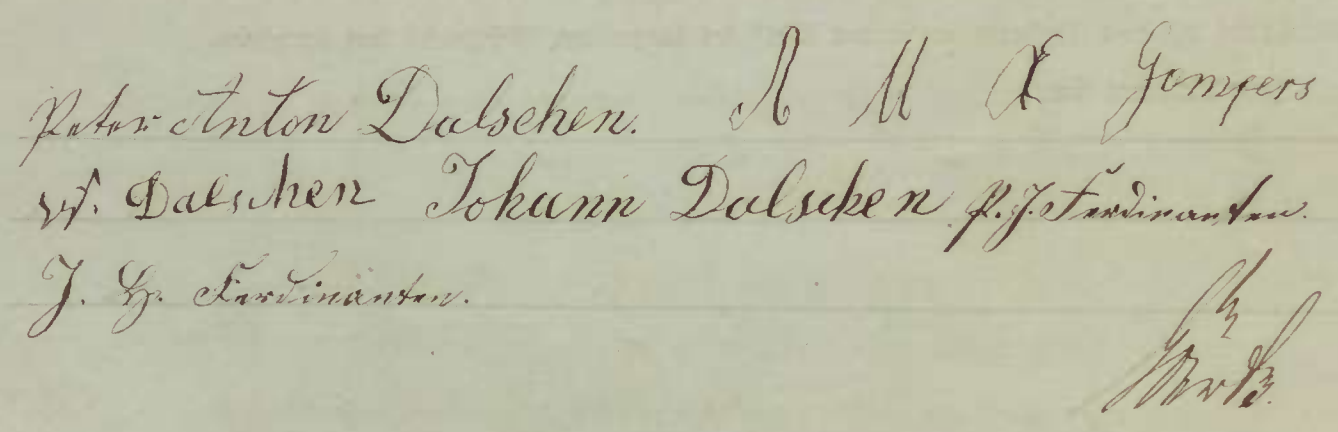 Peter Anton Dalschen. A M A Gompers
W. Dalschen Johann Dalschen P. J. Ferdinanten.
J. H. Ferdinanten.